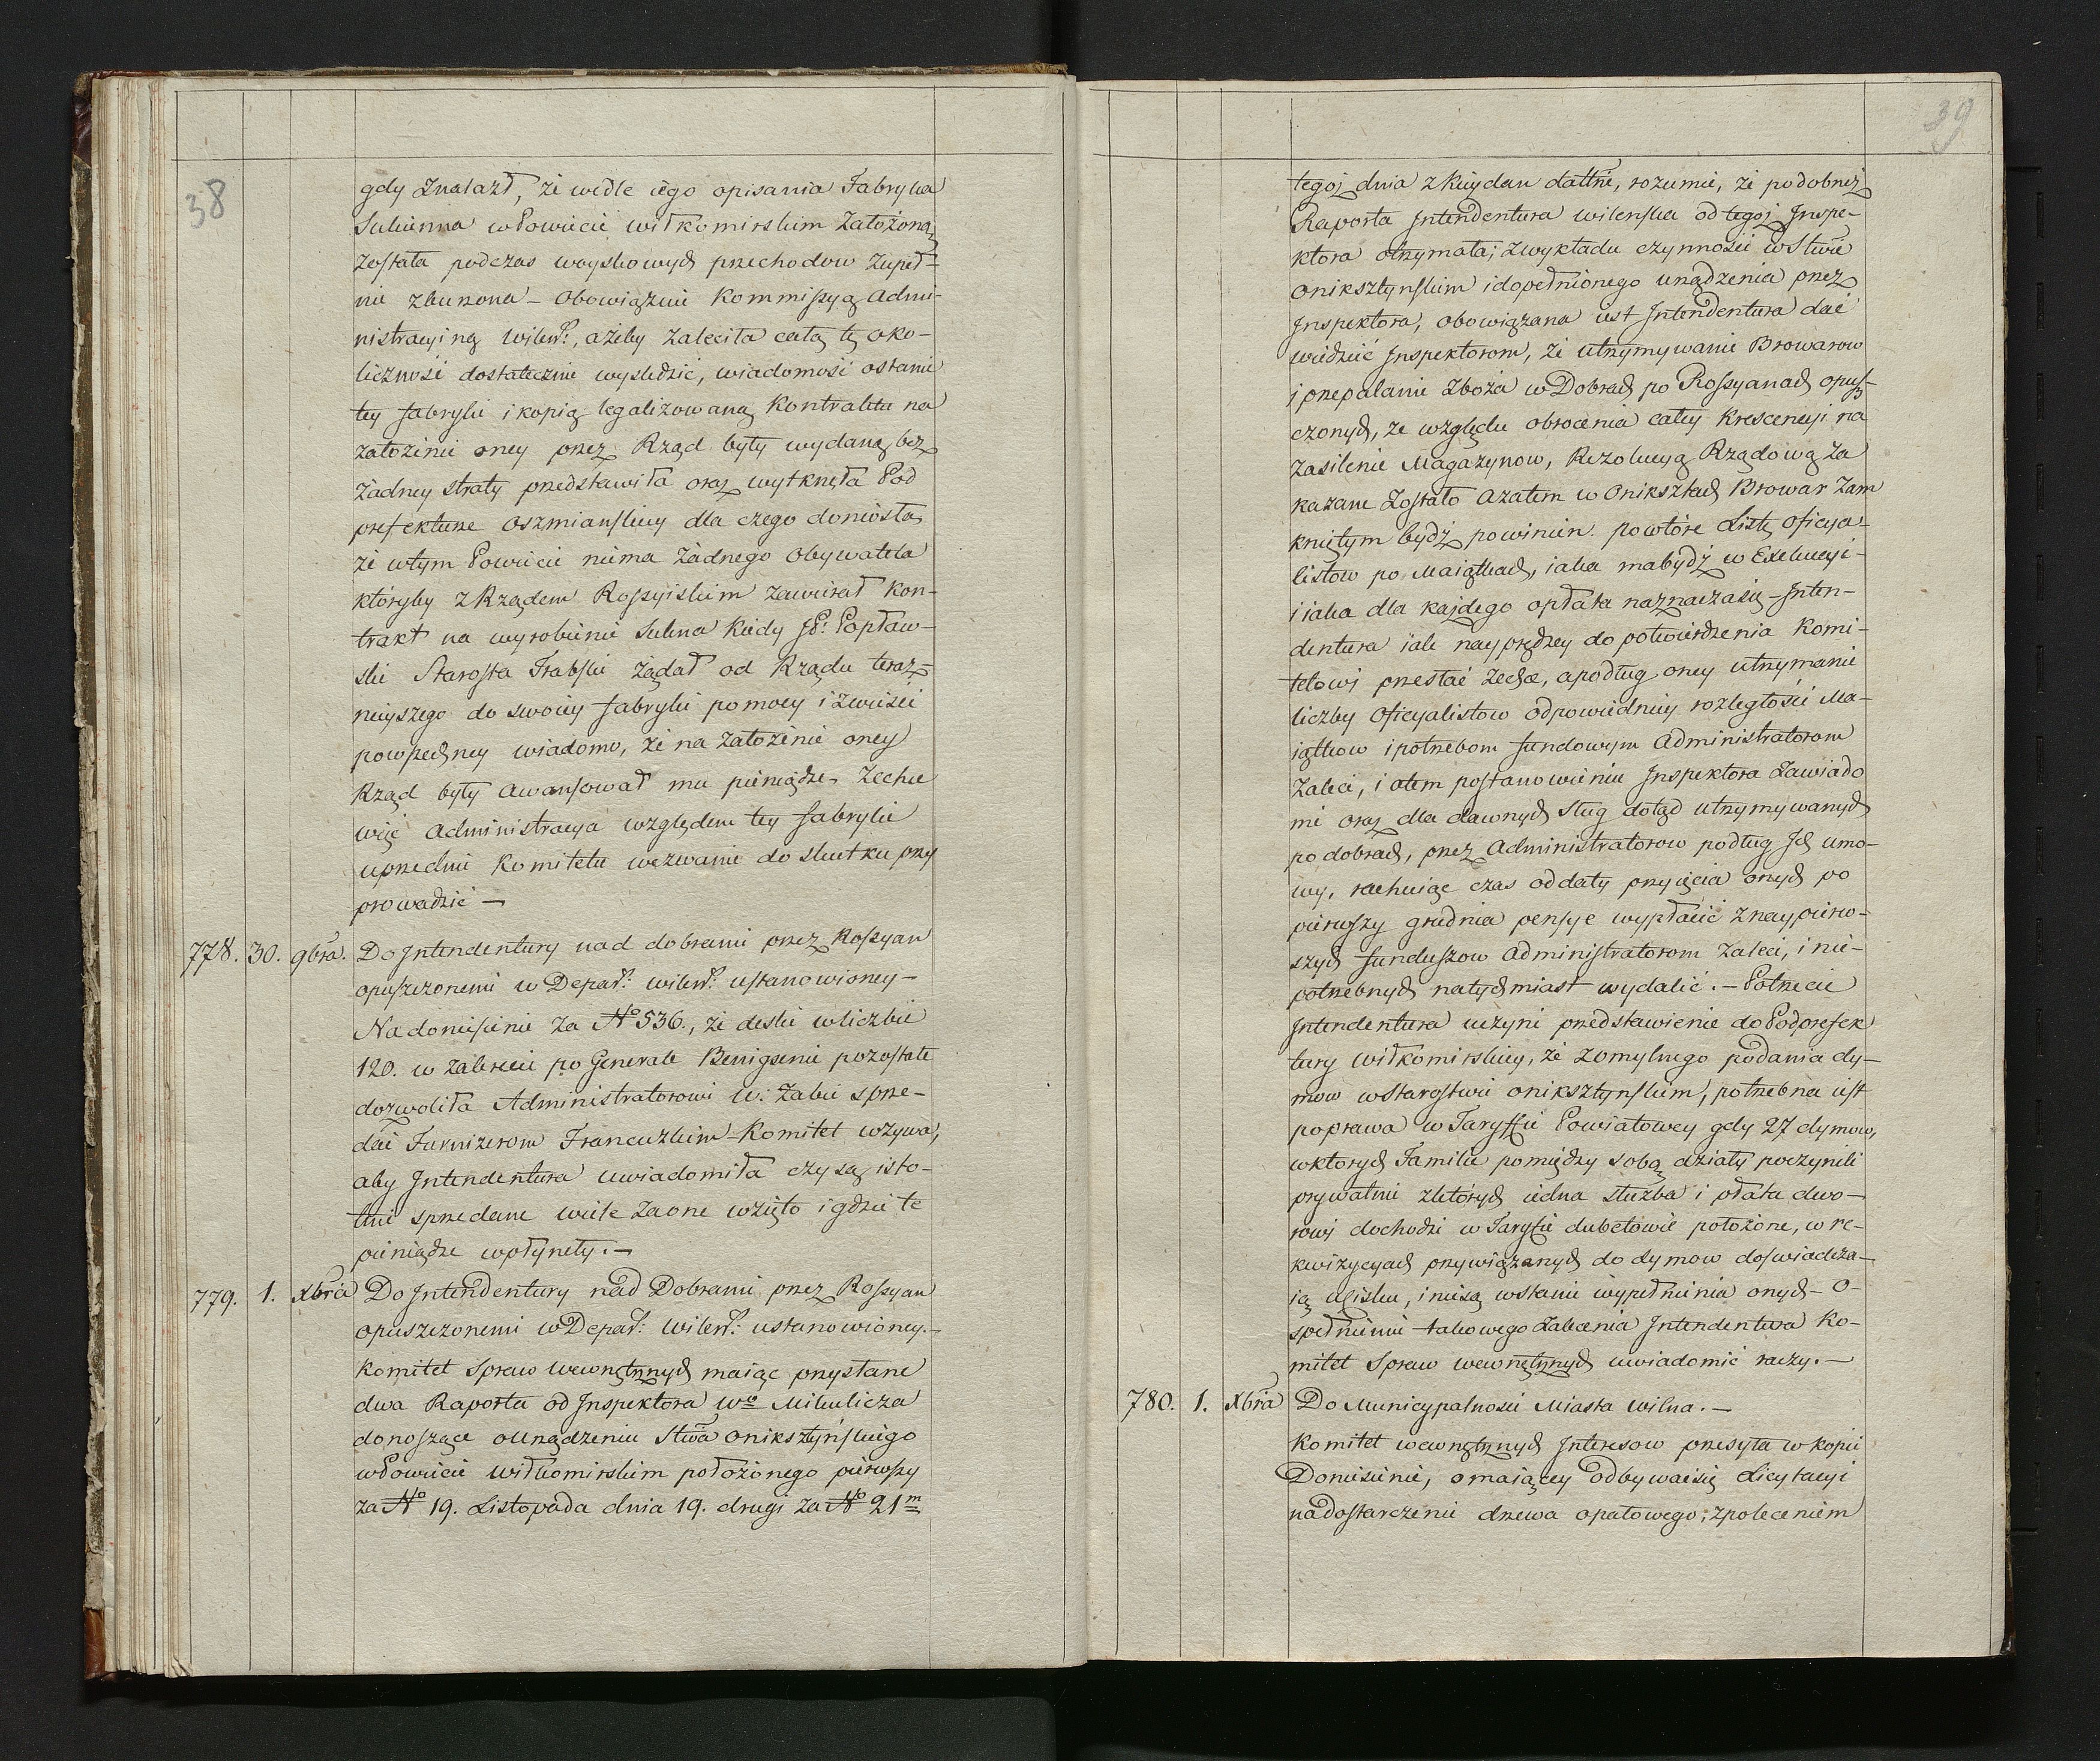 38
gdy znalazł, że wedle iego opisania Fabryka
Sukienna w Powiecie wiłkomirskim założoną
została podczas woyskowych przechodow zupeł-
nie zburzona – Obowiązuie Kommissyą Admi-
nistracyiną wileńs:, ażeby zaleciła całą tę oko-
liczność dostatecznie wyśledzić, wiadomość o stanie
tey fabryki i kopią legalizowaną Kontraktu na
założenie oney przez Rząd były wydaną bez
żadney straty przedstawiła oraz wytknęła Pod
prefekturze Oszmiańskiey dla czego doniosła,
że w tym Powiecie niema żadnego Obywatela
któryby z Rządem Rossyiskim zawierał kon-
trakt na wyrobienie Sukna kiedy JP: Popław-
ski Starosta Trabski żądał od Rządu teraz-
nieyszego do swoiey fabryki pomocy i zwieści
powszechney wiadomo, że na założenie oney
Rząd były awansował mu pieniądze. Zechce
więc Administracya względem tey fabryki
uprzednie Komitetu wezwanie do skutku przy
prowadzić –
778. 30. 9bra. Do Intendentury nad dobrami przez Rossyan
opuszczonemi w Depar: wileńs: ustanowioney –
Na doniesienie za No 536., że deski w liczbie
120. w Zabrzeciu po Generale Benigsenie pozostałe
dozwoliła Administratorowi W: Żabie sprze-
dać Furnizerom Francuzkim – Komitet wzywa,
aby Intendentura uwiadomiła czy są isto-
tnie sprzedane wiele za one wzięto i gdzie te
pieniądze wpłynęły. –
779. 1. Xbra Do Intendentury nad Dobrami przez Rossyan
opuszczonemi w Depar: Wileńs: ustanowioney. –
Komitet Spraw wewnętrznych maiąc przysłane
dwa Raporta od Inspektora Wo Mikulicza
donoszące o urządzeniu Stwa Oniksztyńskiego
w Powiecie wiłkomirskim położonego pierwszy
za No 19. Listopada dnia 19. drugi za No 21m
39
tegoż dnia z Kuydan datne, rozumie, że podobneż
Raporta Intendentura wileńska od tegoż Inspe-
ktora otrzymała; z wykładu czynności w Stwie
Oniksztynskim i dopełnionego urządzenia przez
Inspektora, obowiązana iest Intendentura dać
wiedzieć Inspektorom, że utrzymywanie Browarow
i przepalanie Zboża w Dobrach po Rossyanach opusz-
czonych, ze względu obrocenia całey Krescencyi na
zasilenie Magazynow, Rezolucyą Rządową za
kazane zostało a zatem w Onikszłach Browar zam
kniętym bydź powinien. powtóre Listę Oficya-
listow po Maiątkach, iaka ma bydź w Exekucyi –
i iaka dla każdego opłata naznacza się – Inten-
dentura iak nayprędzey do potwierdzenia Komi-
tetowi przesłać zechce, a podług oney utrzymanie
liczby Oficyalistow odpowiedniey rozległości Ma-
iątkow i potrzebom funduwym Administratorom
zaleci, i o tem postanowieniu Inspektora zawiado
mi oraz dla dawnych sług dotąd utrzymywanych
po dobrach, przez Administratorow podług Jch umo-
wy, rachuiąc czas od daty przyięcia onych po
pierwszy grudnia pensye wypłacić z naypierw-
szych funduszow Administratorom zaleci, i nie-
potrzebnych natychmiast wydalić. – Potrzecie
Intendentura uczyni przedstawienie do Podprefek
tury wiłkomirskiey, że z omylnego podania dy-
mow w Starostwie Oniksztynskim, potrzebna iest
poprawa w Taryffie Powiatowey gdy 27 dymow,
w ktorych Familie pomiędzy sobą działy poczynili
prywatnie z których iedna służba i płata dwo-
rowi dochodzi w Taryfie dubeltowie położone, w re-
kwizycyach przywiązanych do dymow doswiadcza-
ią ucisku, i nie są w stanie wypełnienia onych – O
spełnieniu takowego zalecenia Intendentura Ko-
mitet Spraw wewnętrznych uwiadomić raczy. –
780. 1. Xbra Do Municypalności Miasta Wilna. –
Komitet wewnętrznych Interesow przesyła w kopii
Doniesienie, o maiącey odbywać się Licytacyi
na dostarczenie drzewa opałowego; z poleceniem